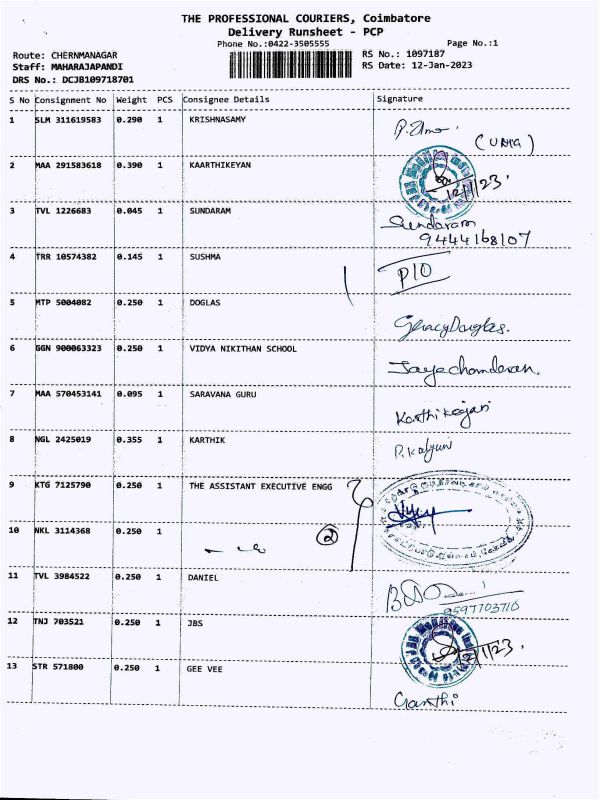 THE PROFESSIONAL COURIERS, Coimbatore
Delivery Runsheet - PCP
Phone No.:0422-3505555 Page No.:1
Route: CHERNMANAGAR RS No.: 1097187
Staff: MAHARAJAPANDI RS Date: 12-Jan-2023
DRS No.: DCJB109718701
S No Consignment No Weight PCS Consignee Details Signature
1 SLM 311619583 0.290 1 KRISHNASAMY
(UMA)
2 MAA 291583618 0.390 1 KAARTHIKEYAN
12/1/23.
3 TVL 1226683 0.045 1 SUNDARAM Sundaram
9444168107
4 TRR 10574382 0.145 1 SUSHMA P10
5 MTP 5004082 0.250 1 DOGLAS
6 GGN 900063323 0.250 1 VIDYA NIKITHAN SCHOOL Jayachandaran.
7 MAA 570453141 0.095 1 SARAVANA GURU Karthikeyan
8 NGL 2425019 0.355 1 KARTHIK
9 KTG 7125790 0.250 1 THE ASSISTANT EXECUTIVE ENGG
10 NKL 3114368 0.250 1 2
11 TVL 3984522 0.250 1 DANIEL
9597703716
12 TNJ 703521 0.250 1 JBS
12/1/23.
13 STR 571800 0.250 1 GEE VEE
Ganthi